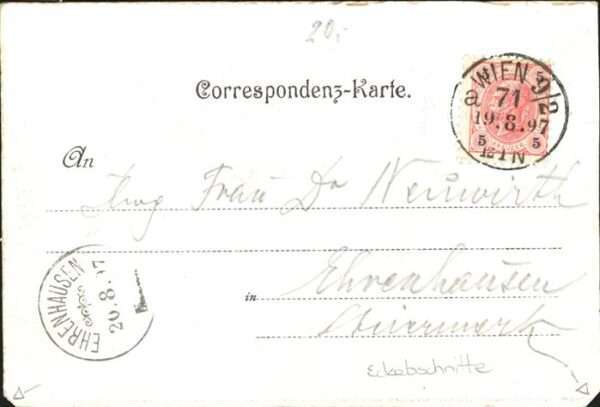 20,-
Correspondenz-Karte.
WIEN 9/2
a 71
19.8.97
5 5
12 1N
An
Frau Dr Neuwirth
EHRENHAUSEN
20.8.97
in Ehrenhausen
Steiermark
Eckabschnitte